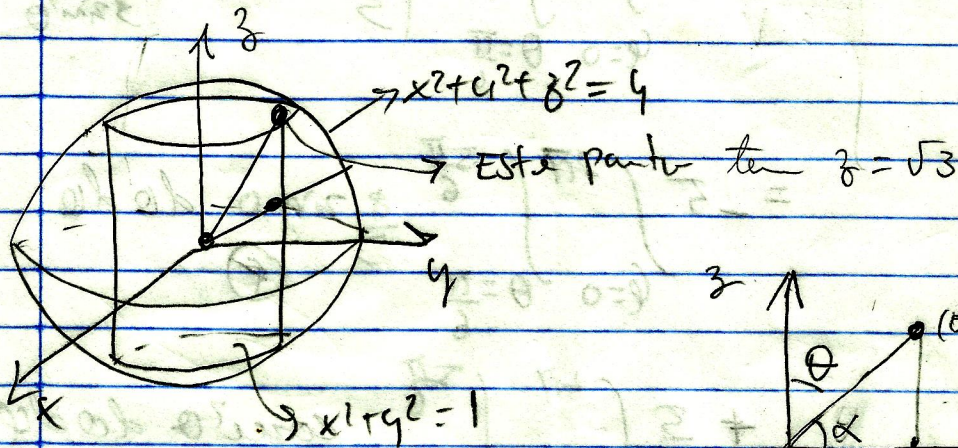 z
x²+y²+z²=4
Este ponto tem z=√3
y
z
θ
α
x
x²+y²=1